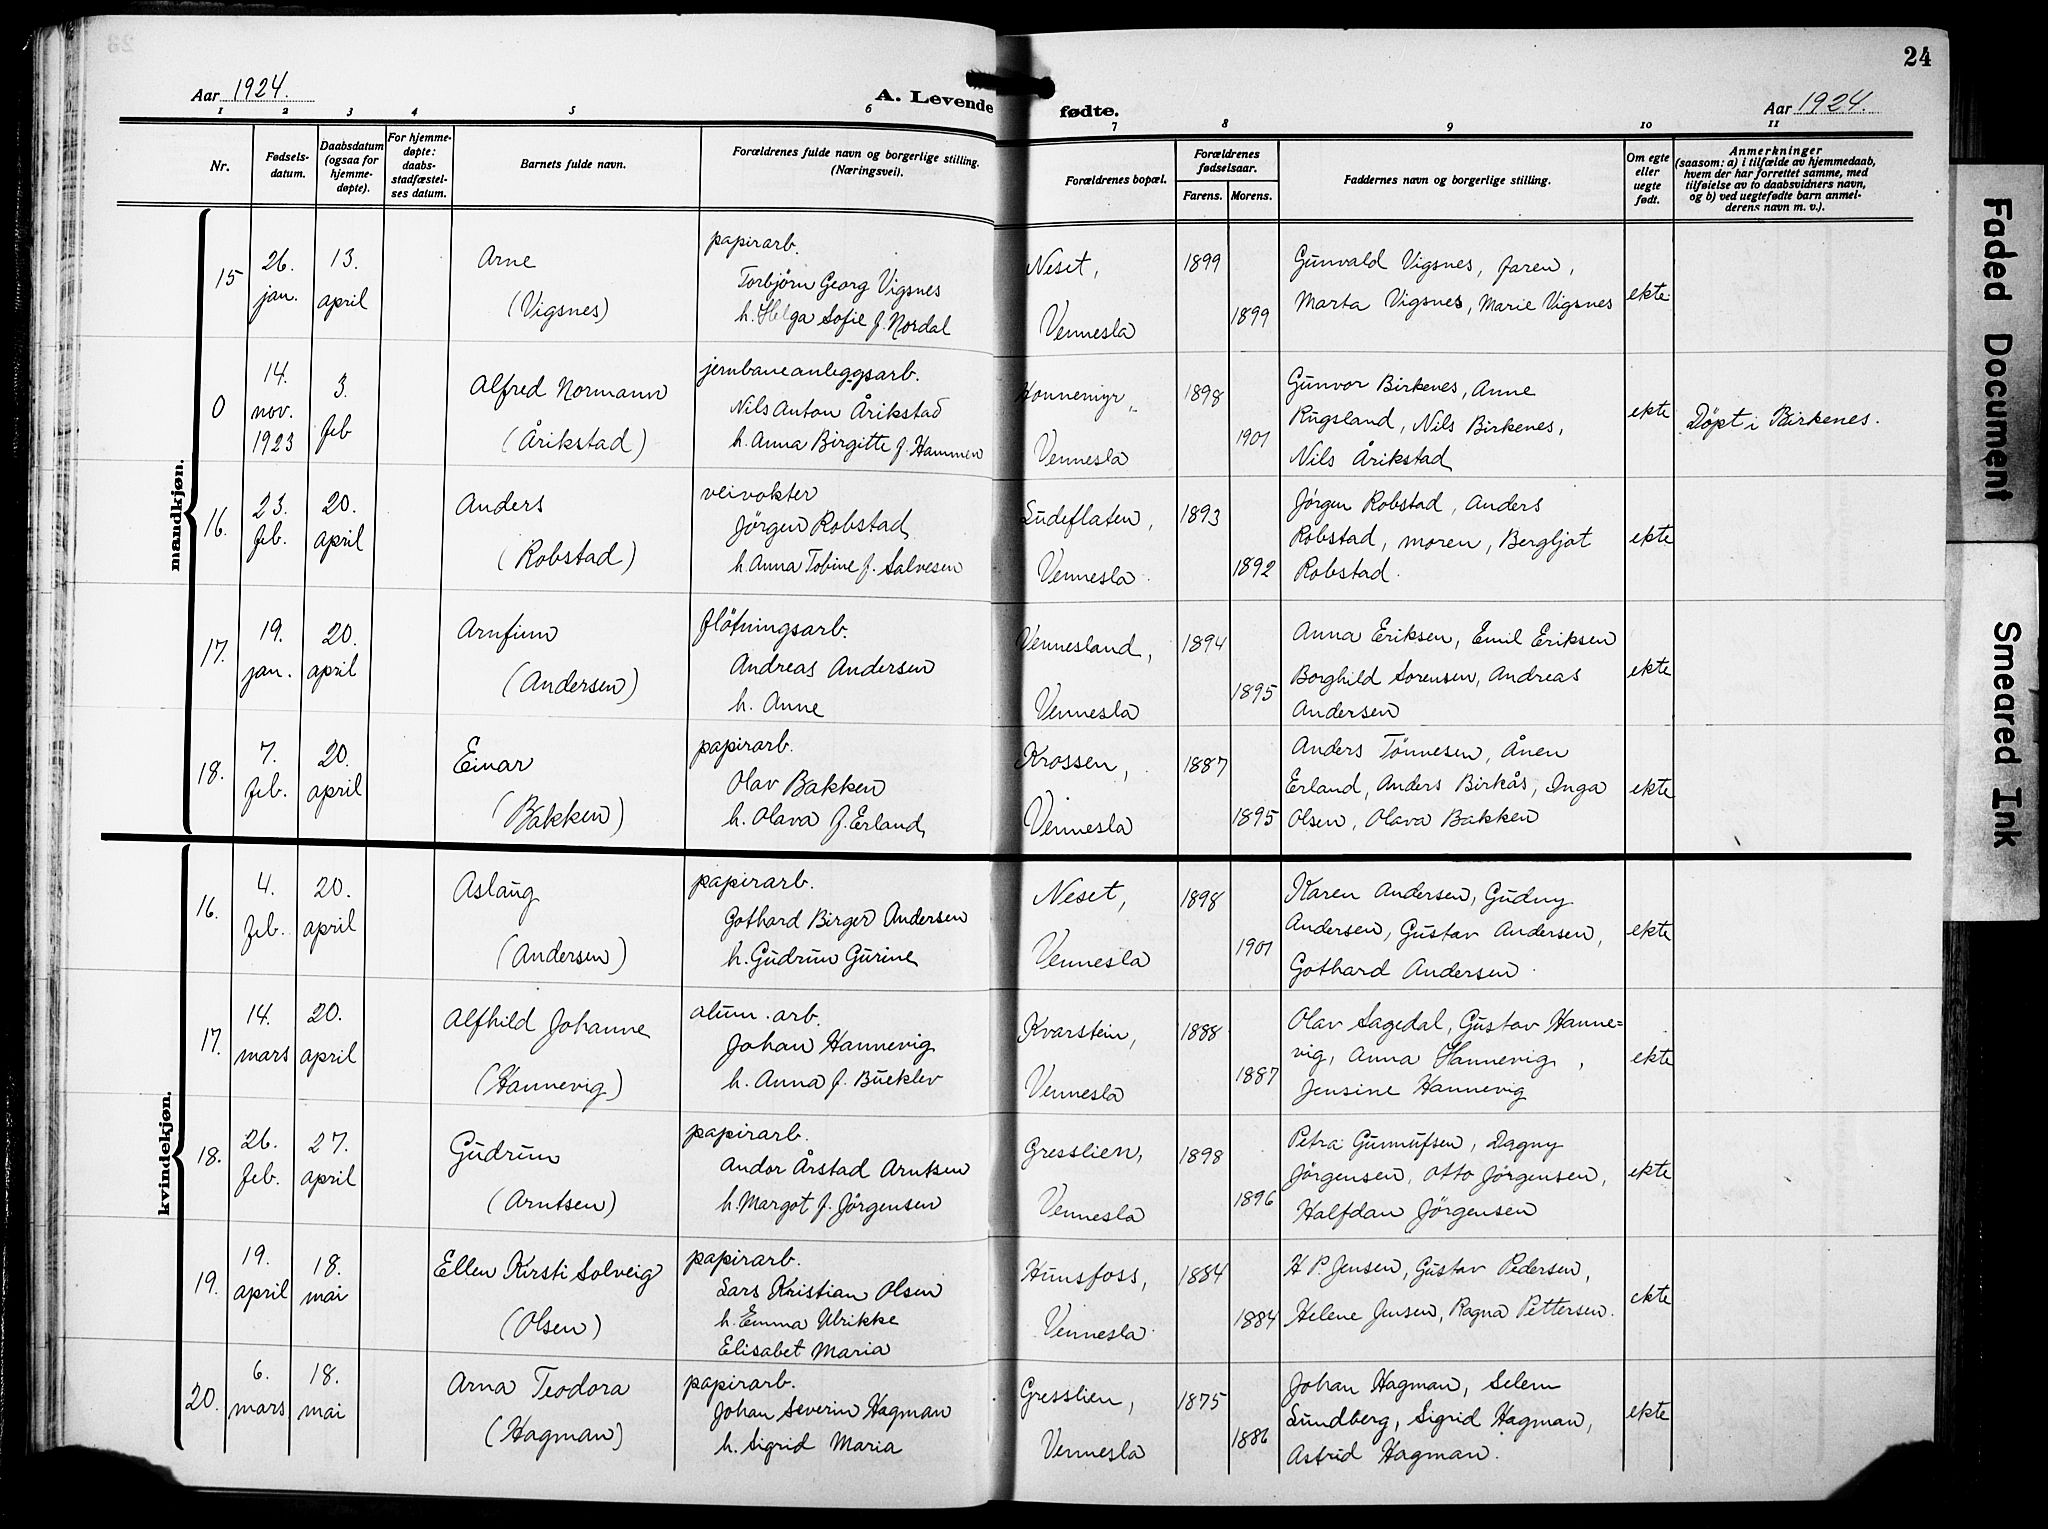 24
Aar 1924.
A. Levende fødte.
Aar 1924.
1 2 3 4 5 6 7 8 9 10 11
Nr.
Fødsels-
datum.
Daabsdatum
(ogsaa for
hjemme-
døpte).
For hjemme-
døpte:
daabs-
stadfæstel-
ses datum.
Barnets fulde navn.
Forældrenes fulde navn og borgerlige stilling.
(Næringsvei).
Forældrenes bopæl.
Forældrenes
fødselsaar.
Farens. Morens.
Faddernes navn og borgerlige stilling.
Om egte
eller
uegte
født.
Anmerkninger
(saasom: a) i tilfælde av hjemmedaab,
hvem der har forrettet samme, med
tilføielse av to daabsvidners navn,
og b) ved uegtefødte barn anmel-
derens navn m. v.).
mandkjøn.
15
26.
jan.
13.
april
Arne
(Vigsnes)
papirarb.
Torbjörn Georg Vigsnes
h. Helga Sofie f. Nordal
Neset,
Vennesla
1899
1899
Gunvald Vigsnes, faren,
Marta Vigsnes, Marie Vigsnes
ekte
0
14.
nov.
1923
3.
feb
Alfred Normann
(Årikstad)
jernbaneanleggsarb.
Nils Anton Årikstad
h. Anna Birgitte f. Hammen
Honnemyr,
Vennesla
1898
1901
Gunvor Birkenes, Anne
Rugsland, Nils Birkenes,
Nils Årikstad
ekte
Döpt i Birkenes.
16.
23.
feb.
20.
april
Anders
(Robstad)
veivokter
Jörgen Robstad
h. Anna Tobine f. Salvesen
Ludeflaten,
Vennesla.
1893
1892
Jörgen Robstad, Anders
Robstad, moren, Bergljot
Robstad.
ekte
17.
19.
jan.
20.
april
Arnfinn
(Andersen)
flötningsarb.
Andreas Andersen
h. Anne
Vennesland,
Vennesla
1894
1895
Anna Eriksen, Emil Eriksen
Borghild Sorensen, Andreas
Andersen
ekte
18.
7.
feb.
20.
april
Einar
(Bakken)
papirarb.
Olav Bakken
h. Olava f. Erland
Krossen,
Vennesla
1887
1895
Anders Tönnesen, Ånen
Erland, Anders Birkås, Inga
Olsen, Olava Bakken
ekte
kvindekjøn.
16.
4.
feb.
20.
april
Aslaug
(Andersen)
papirarb.
Gothard Birger Andersen
h. Gudrun Gurine
Neset,
Vennesla
1898
1901
Karen Andersen, Gudny
Andersen, Gustav Andersen,
Gothard Andersen.
ekte
17.
14.
mars
20.
april
Alfhild Johanne
(Hannevig)
alum. arb.
Johan Hannevig
h. Anna f. Bueklev
Kvarstein,
Vennesla
1888
1887
Olav Sagedal, Gustav Hanne=
vig, Anna Hannevig,
Jensine Hannevig
ekte
18.
26.
feb.
27.
april
Gudrun
(Arntsen)
papirarb.
Andor Årstad Arntsen
h. Margot f. Jörgensen
Gresslien,
Vennesla
1898
1896
Petra Gunnufsen, Dagny
Jörgensen, Otto Jörgensen,
Halfdan Jörgensen
ekte
19.
19.
april
18.
mai
Ellen Kirsti Solveig
(Olsen)
papirarb.
Lars Kristian Olsen
h. Emma Ulrikke
Elisabet Maria
Hunsfoss,
Vennesla
1884
1884
H P. Jensen, Gustav Pedersen,
Helene Jensen, Ragna Pettersen.
ekte
20.
6.
mars
18.
mai
Arna Teodora
(Hagman)
papirarb.
Johan Severin Hagman
h. Sigrid Maria
Gresslien,
Vennesla
1875
1886
Johan Hagman, Selem
Lundberg, Sigrid Hagman,
Astrid Hagman.
ekte
Faded Document
Smeared Ink